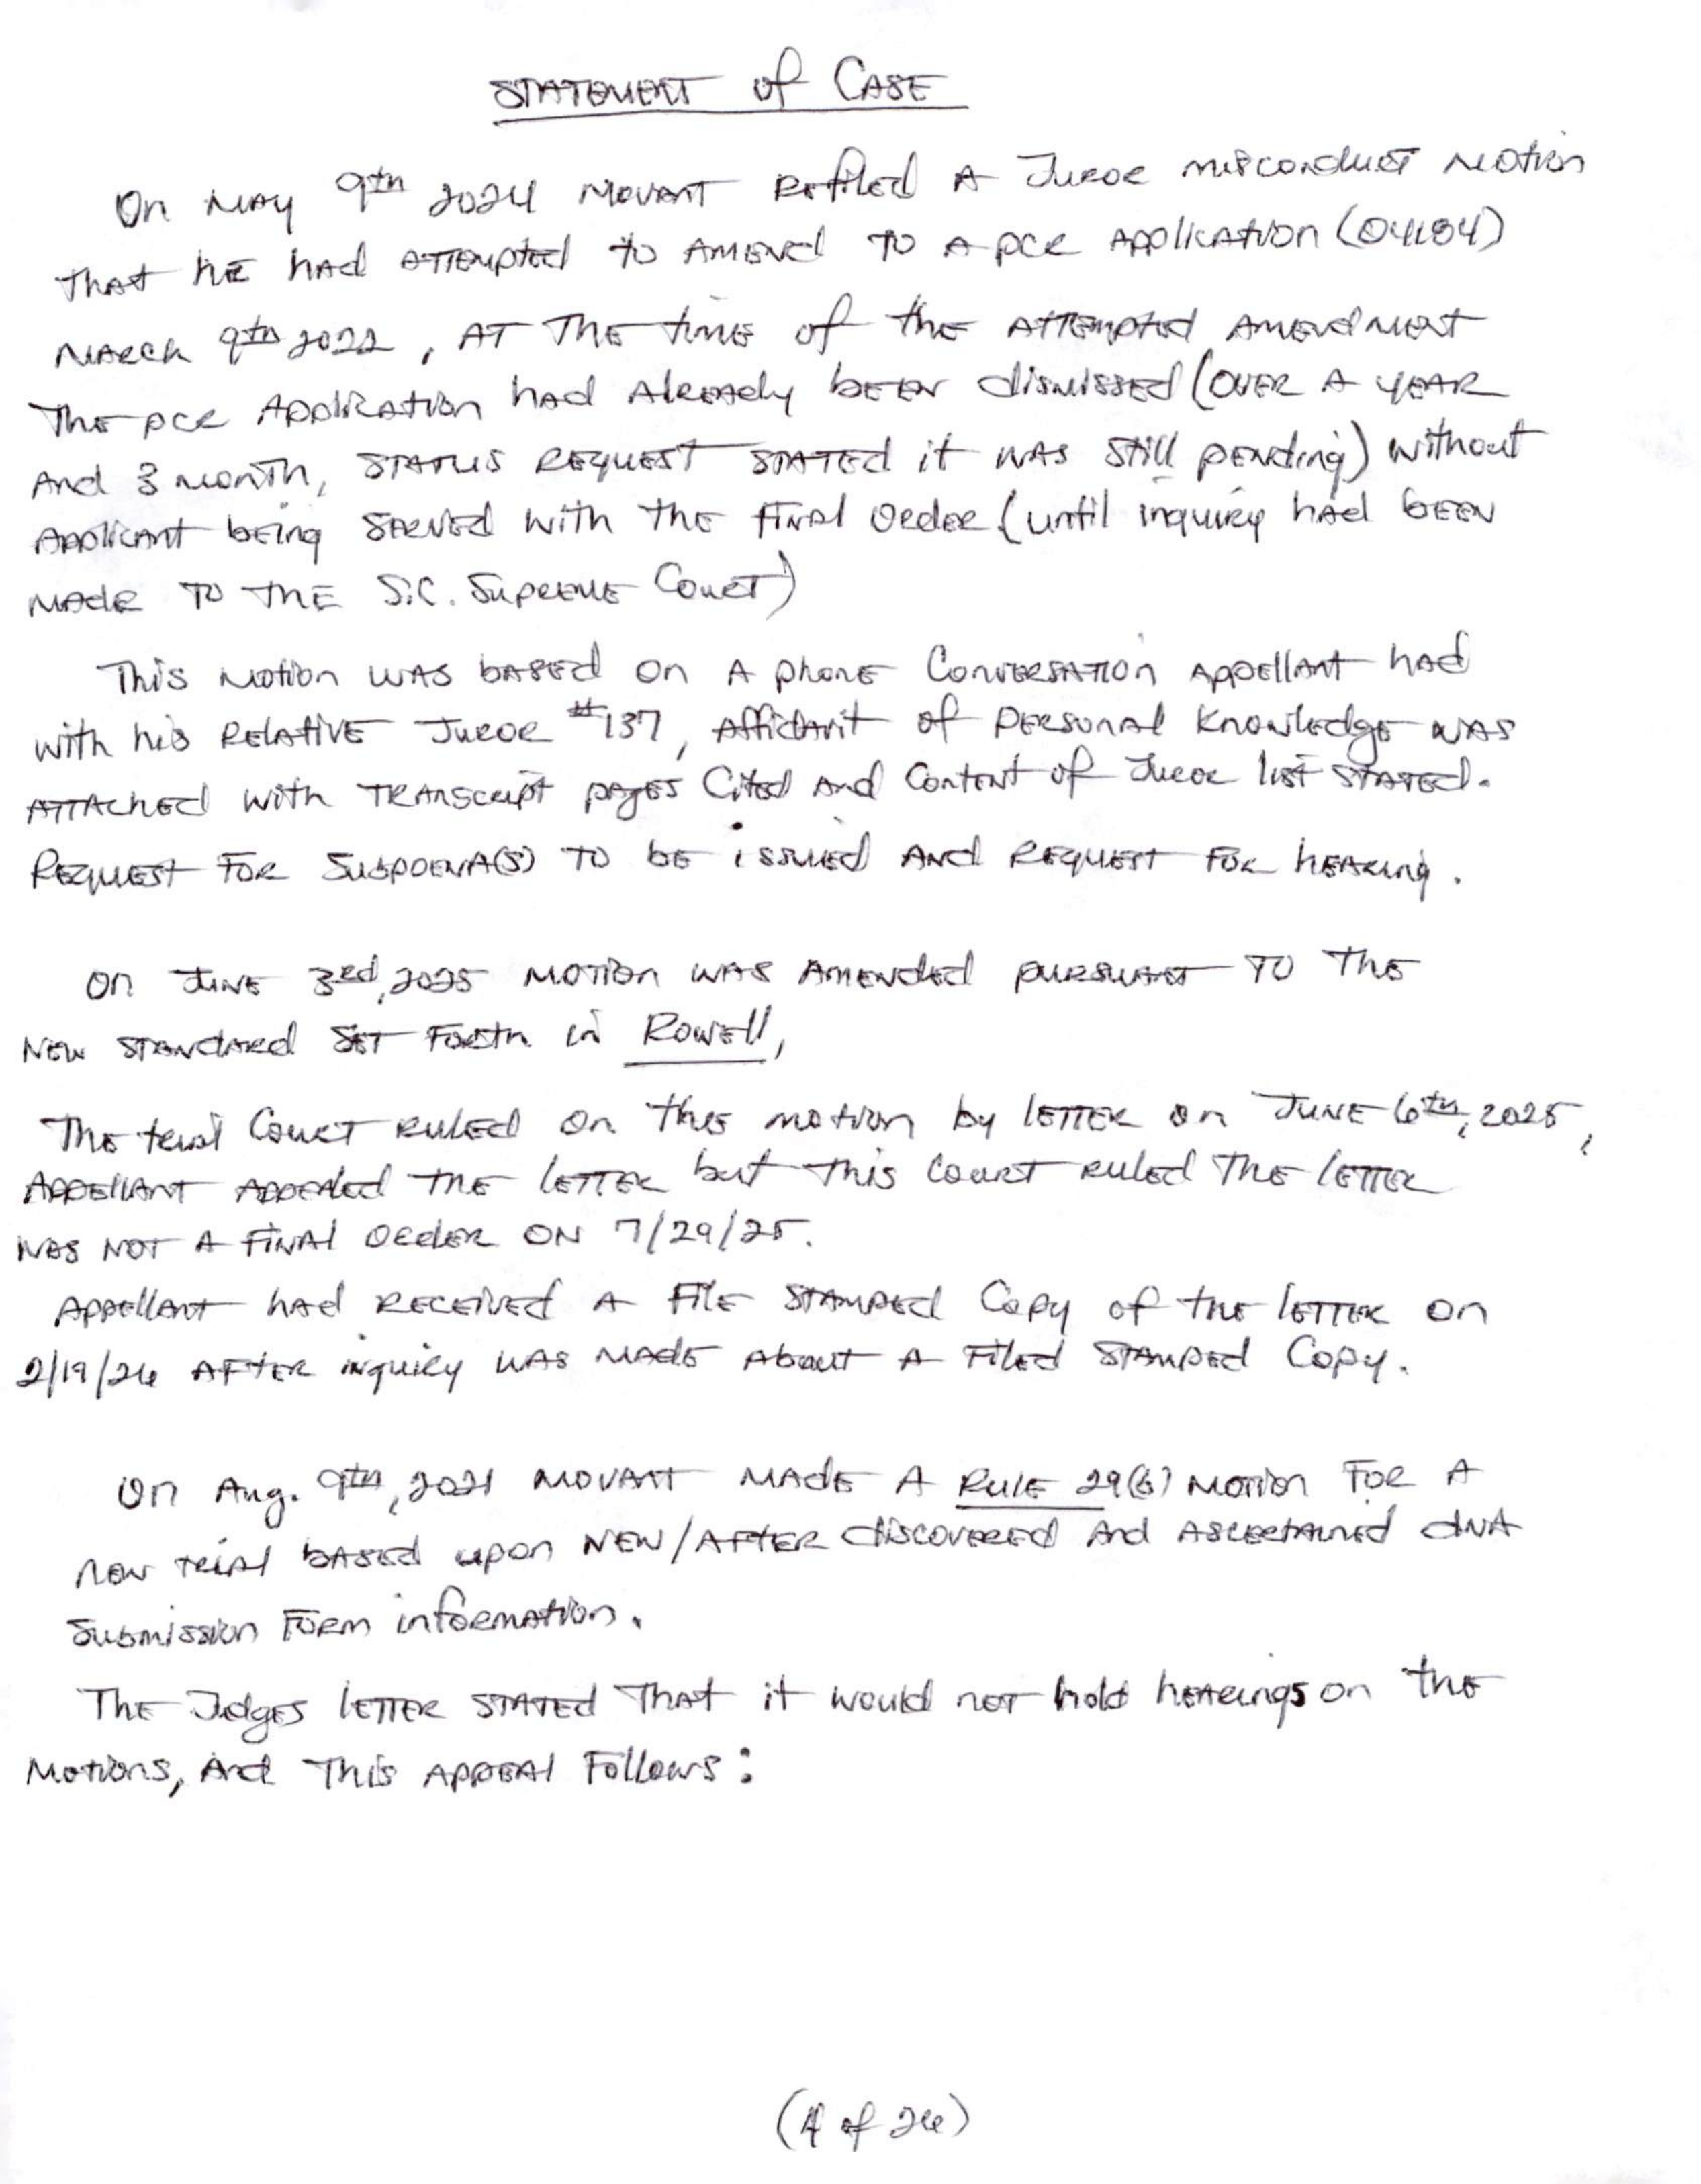 STATEMENT of CASE
On MAY 9th 2024 MOVANT Refiled A Juror misconduct motion
that HE had ATTEMPTED to AMEND TO A PCR Application (04184)
MARCH 9th 2022, AT THE time of the ATTEMPTED AMENDMENT
The PCR Application had Already been dismissed (OVER A YEAR
And 3 month, STATUS REQUEST STATED it WAS Still pending) without
Applicant being SERVED with the FINAL Order (until inquiry had been
MADE TO THE S.C. SUPREME COURT)
This motion WAS bASED on A phone Conversation Appellant had
with his RELATIVE JUROR #137, Affidavit of PERSONAL Knowledge WAS
ATTACHED with TRANSCRIPT pages Cited And Content of Juror list STATED.
REQUEST FOR SUBPOENA(S) TO be issued AND REQUEST FOR hearing.
On JUNE 3rd, 2025 MOTION WAS AMENDED pursuant TO The
NEW STANDARD SET FORTH in Rowell,
The trial Court RULED On this motion by LETTER on JUNE 6th, 2025,
APPELLANT APPEALED THE LETTER but This Court RULED THE LETTER
WAS NOT A FINAL ORDER ON 7/29/25.
Appellant had RECEIVED A FILE STAMPED Copy of the LETTER on
2/19/26 AFTER inquiry WAS MADE About A FILED STAMPED Copy.
On Aug. 9th, 2021 MOVANT MADE A RULE 29(b) MOTION FOR A
New TRIAL bASED upon NEW/AFTER discovered And ASCERTAINED dNA
Submission Form information.
The Jidges LETTER STATED That it would not hold hearings on the
Motions, And This APPEAL Follows:
(4 of 26)